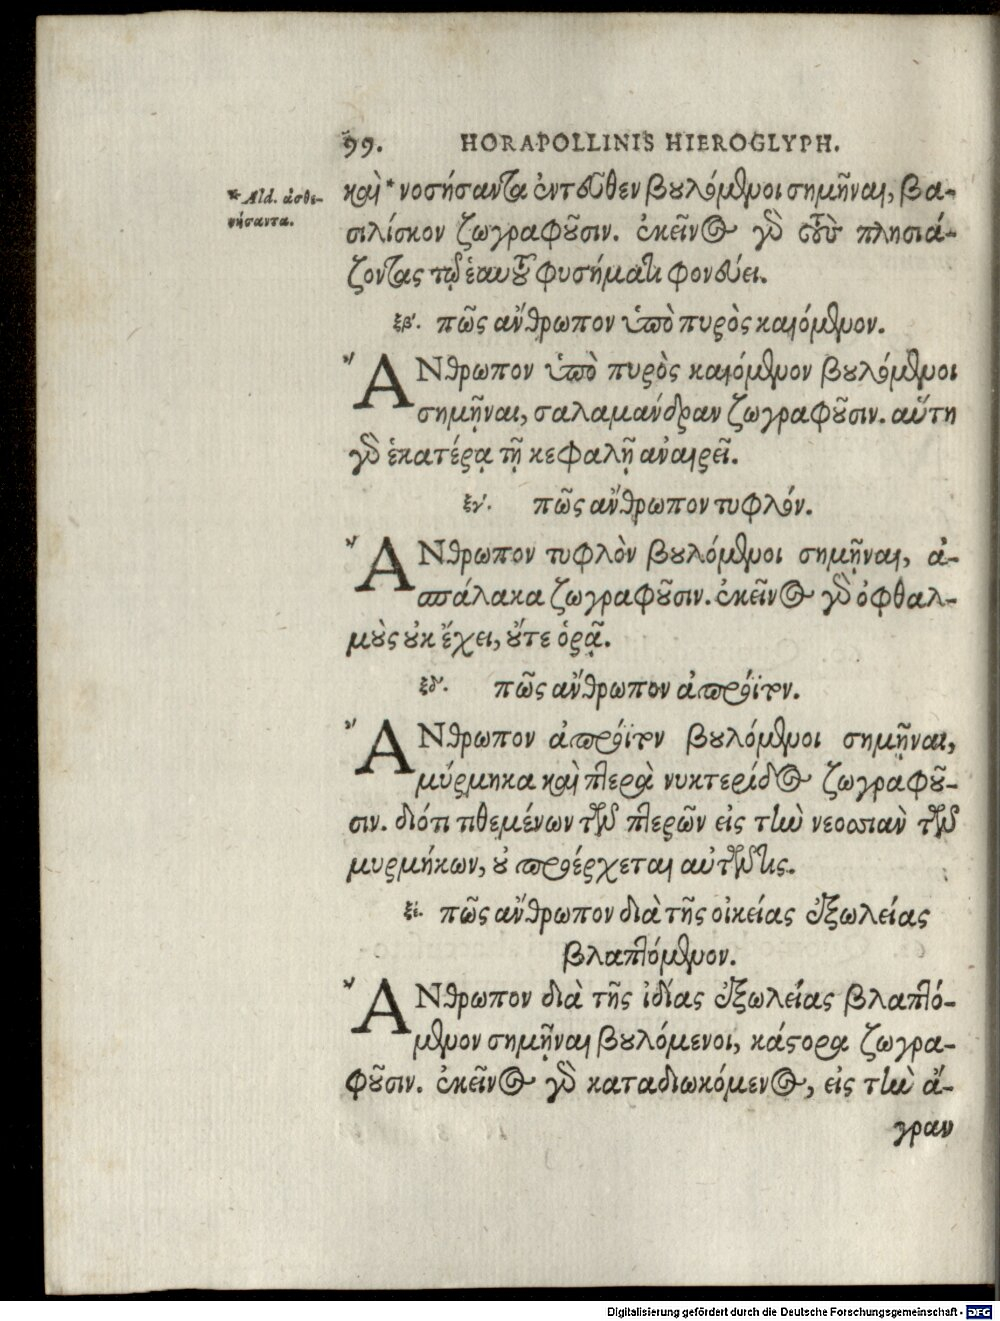 99. HORAPOLLINIS HIEROGLYPH.
* Ald. ἀσθε-
νήσαντα.
καὶ * νοσήσαντα ἐντεῦθεν βουλόμενοι σημῆναι, βα-
σιλίσκον ζωγραφοῦσιν. ἐκεῖνος γὰρ τοὺς πλησιά-
ζοντας τῷ ἑαυτοῦ φυσήματι φονεύει.
ξβ´. πῶς ἄνθρωπον ὑπὸ πυρὸς καιόμενον.
ἌΝθρωπον ὑπὸ πυρὸς καιόμενον βουλόμενοι
σημῆναι, σαλαμάνδραν ζωγραφοῦσιν. αὕτη
γὰρ ἑκατέρᾳ τῇ κεφαλῇ ἀναιρεῖ.
ξγ´. πῶς ἄνθρωπον τυφλόν.
ἌΝθρωπον τυφλὸν βουλόμενοι σημῆναι, ἀ-
σπάλακα ζωγραφοῦσιν. ἐκεῖνος γὰρ ὀφθαλ-
μοὺς οὐκ ἔχει, οὔτε ὁρᾷ.
ξδ´. πῶς ἄνθρωπον ἀπρόϊτον.
ἌΝθρωπον ἀπρόϊτον βουλόμενοι σημῆναι,
μύρμηκα καὶ πτερὰ νυκτερίδος ζωγραφοῦ-
σιν. διότι τιθεμένων τῶν πτερῶν εἰς τὴν νεοσσιὰν τῶν
μυρμήκων, οὐ προέρχεται αὐτῶν τις.
ξε´. πῶς ἄνθρωπον διὰ τῆς οἰκείας ἐξωλείας
βλαπτόμενον.
ἌΝθρωπον διὰ τῆς ἰδίας ἐξωλείας βλαπτό-
μενον σημῆναι βουλόμενοι, κάστορα ζωγρα-
φοῦσιν. ἐκεῖνος γὰρ καταδιωκόμενος, εἰς τὴν ἄ-
γραν
Digitalisierung gefördert durch die Deutsche Forschungsgemeinschaft - DFG